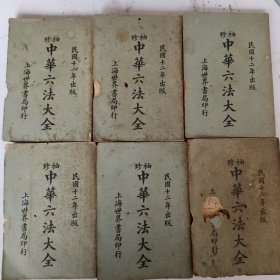 民國十二年出版
袖珍
中華六法大全
上海世界書局印行
民國十二年出版
袖珍
中華六法大全
上海世界書局印行
民國十二年出版
袖珍
中華六法大全
上海世界書局印行
民國十二年出版
袖珍
中華六法大全
上海世界書局印行
民國十二年出版
袖珍
中華六法大全
上海世界書局印行
民國十二年出版
袖珍
中華六法大全
上海 書局印